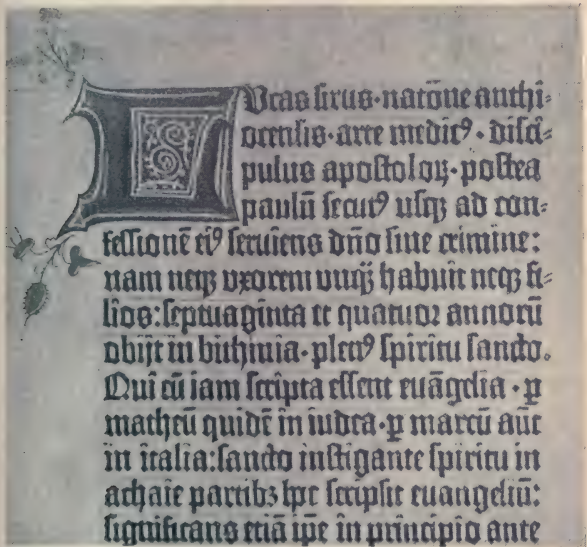 LVcas sirus·natōne anthi-
ocensis·arte medicꝰ·disci-
pulus apostoloꝝ·postea
paulū secutꝰ usqꝫ ad con-
fessionē eiꝰ seruiens dn̄o sine crimine:
nam neqꝫ uxorem unqꝫ̄ habuit neqꝫ fi-
lios:septuaginta et quatuor annorū
obijt in bithinia·plenꝰ spiritu sancto.
Qui cū iam scripta essent euāgelia·ꝑ
matheū quidē in iudea·ꝑ marcū aūt
in italia:sancto instigante spiritu in
achaie partibꝫ hoc scripsit euangeliū:
significans etiā ipe in principio ante